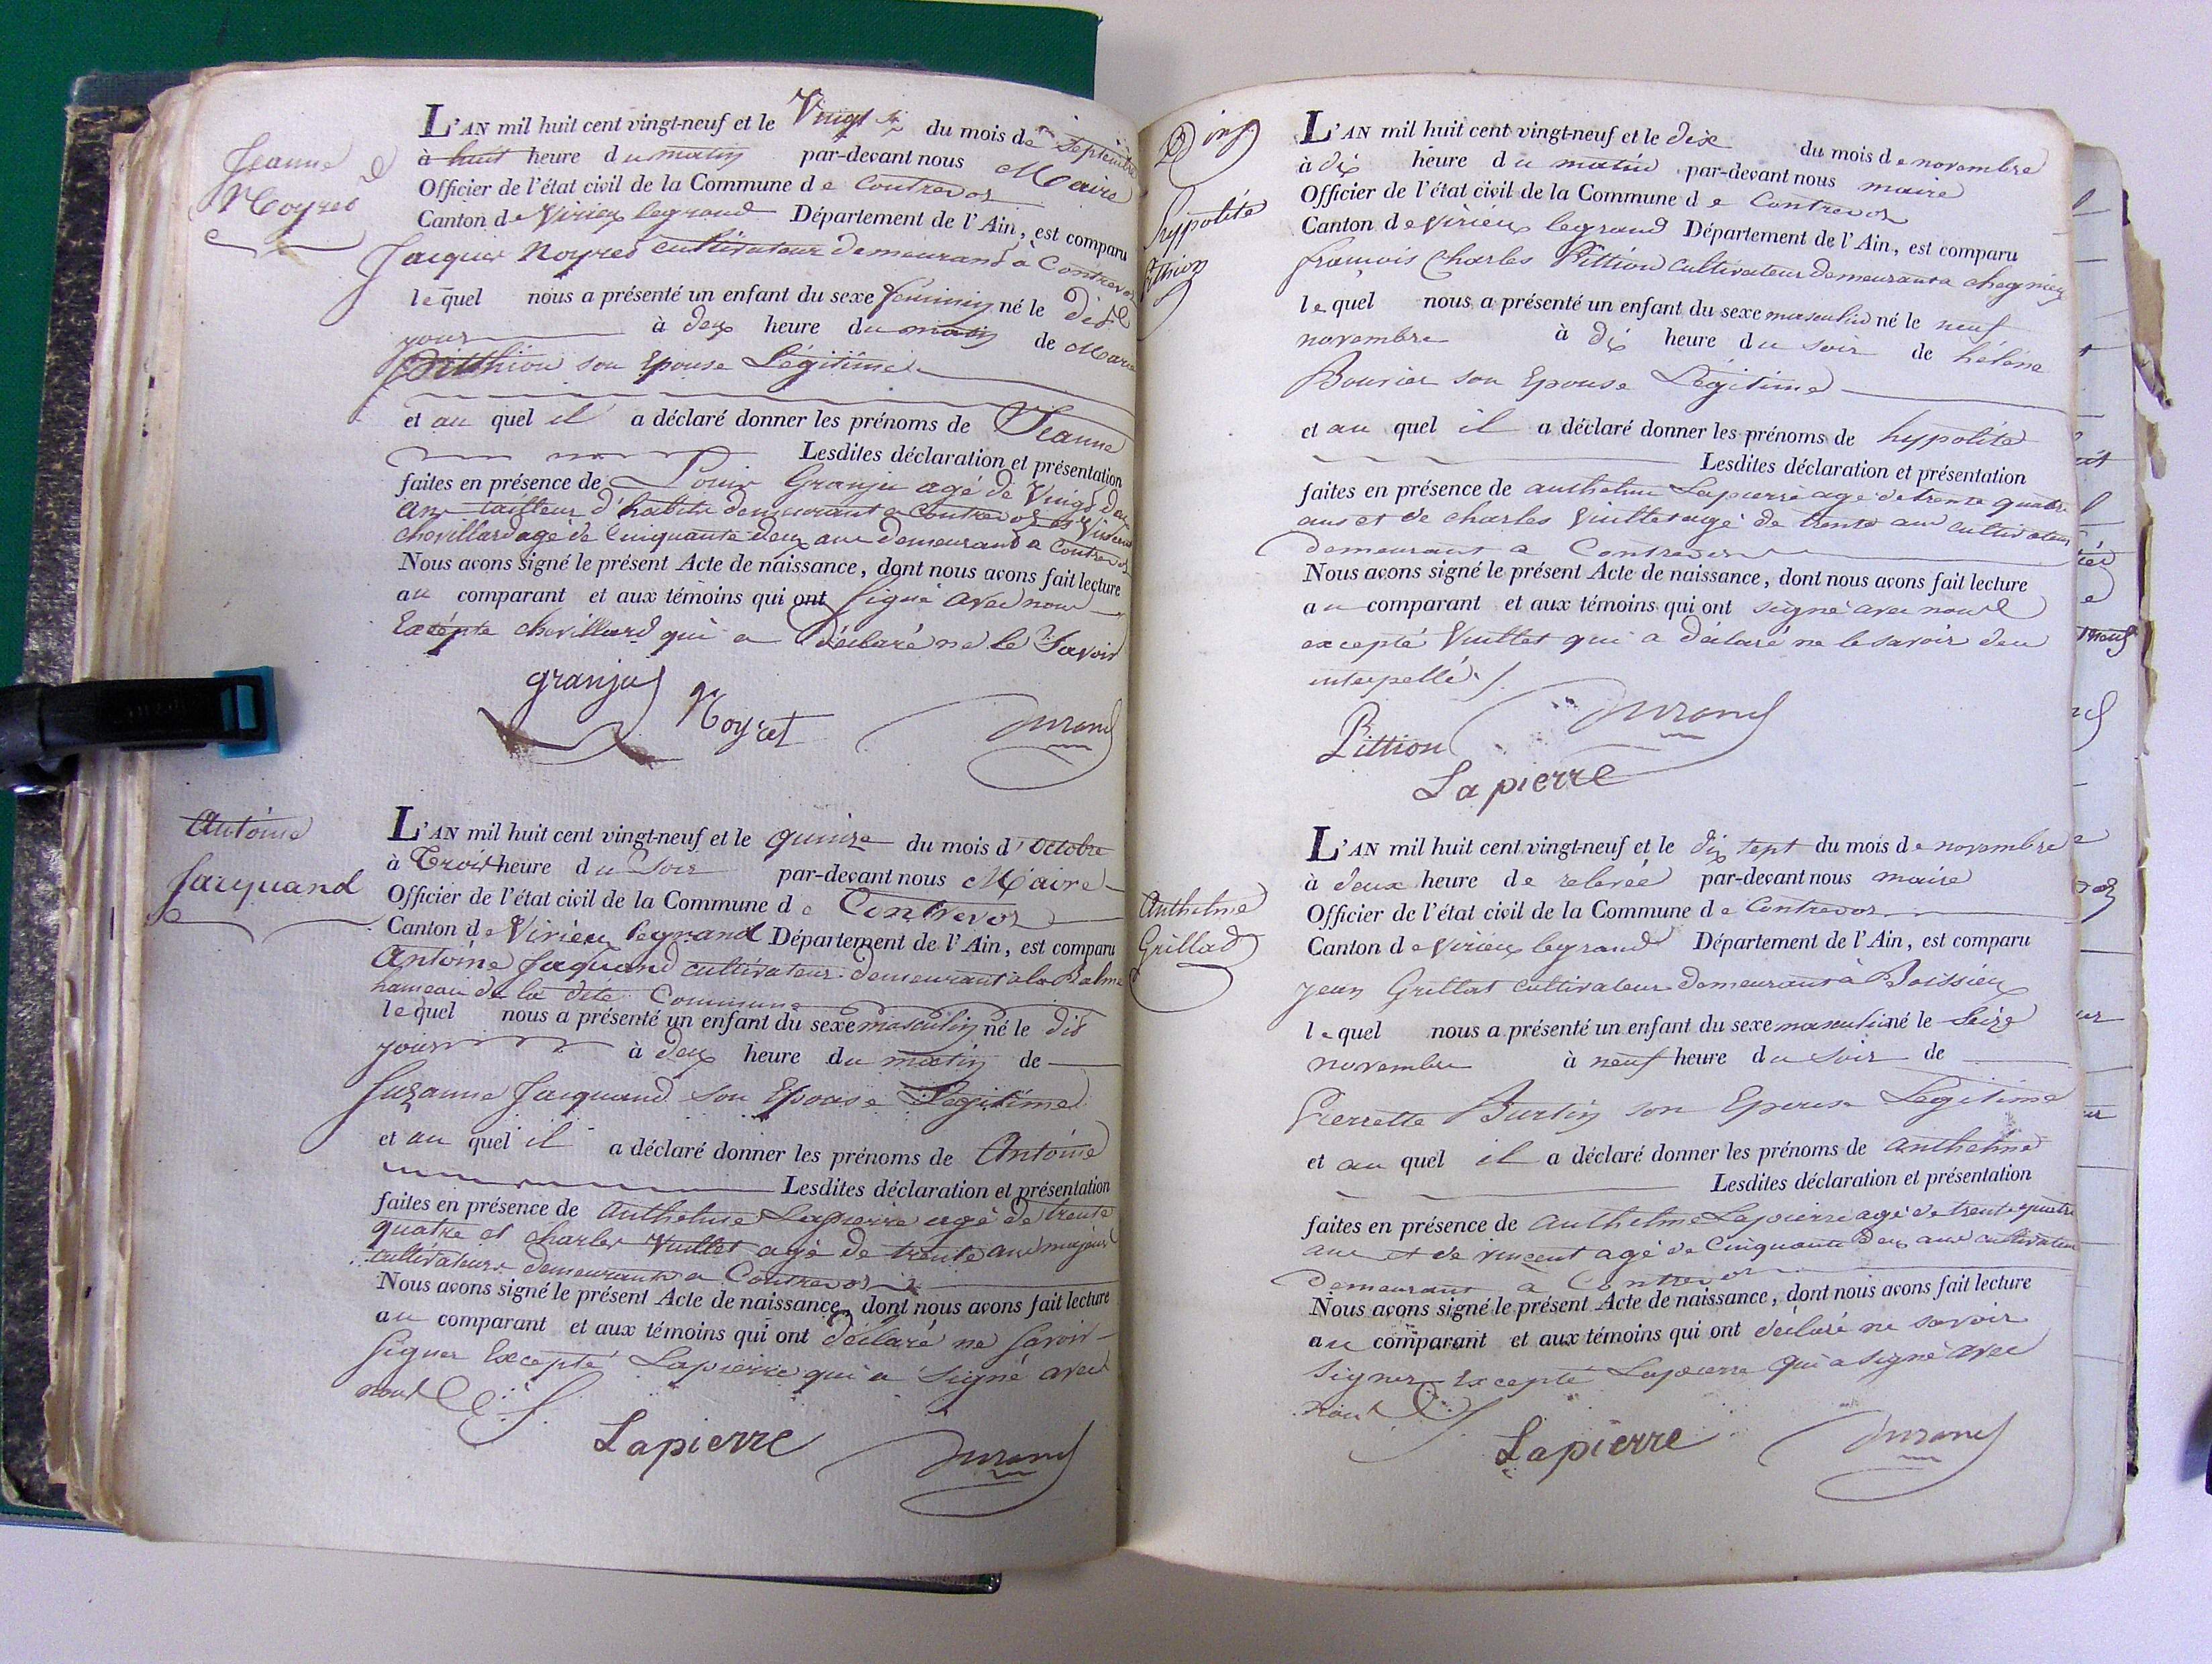 Jeanne
Noyret
L'AN mil huit cent vingt-neuf et le Vingt six du mois de Septembre
à huit heure du matin par-devant nous Maire
Officier de l'état civil de la Commune de Contrevoz
Canton de Virieu legrand Département de l'Ain, est comparu
Jacques Noyret cultivateur demeurant à Contrevoz
lequel nous a présenté un enfant du sexe féminin né le dit
jour à deux heure du matin de Marie
Pitthion son Epouse Légitime
et au quel il a déclaré donner les prénoms de Jeanne
Lesdites déclaration et présentation
faites en présence de Louis Granju agé de Vingt deux
ans tailleur d'habits demeurant a Contrevoz et Vincent
Chovillard agé de Cinquante deux ans demeurant a Contrevoz
Nous avons signé le présent Acte de naissance, dont nous avons fait lecture
au comparant et aux témoins qui ont signé avec nous
Excepte Chovillard qui a déclaré ne le Savoir
granju Noyret Durand
Antoine
Jacquand
L'AN mil huit cent vingt-neuf et le quinze du mois d'Octobre
à Trois heure du Soir par-devant nous Maire
Officier de l'état civil de la Commune de Contrevoz
Canton de Virieu legrand Département de l'Ain, est comparu
Antoine Jaquand cultivateur demeurant à la Balme
hameau de la dite Commune
lequel nous a présenté un enfant du sexe masculin né le dit
jour à deux heure du matin de
Suzanne Jacquand son Epouse Légitime
et au quel il a déclaré donner les prénoms de Antoine
Lesdites déclaration et présentation
faites en présence de Anthelme Lapierre agé de trente
quatre et charles Vuillet agé de trente ans majeurs
cultivateurs demeurants a Contrevoz
Nous avons signé le présent Acte de naissance, dont nous avons fait lecture
au comparant et aux témoins qui ont déclaré ne Savoir
Signer Excepté Lapierre qui a Signé avec
nous
Lapierre Durand
hypolite
Pittion
L'AN mil huit cent vingt-neuf et le dix du mois de novembre
à dix heure du matin par-devant nous maire
Officier de l'état civil de la Commune de Contrevoz
Canton de Virieu legrand Département de l'Ain, est comparu
francois Charles Pittion cultivateur demeurant a chegnieu
lequel nous a présenté un enfant du sexe masculin né le neuf
novembre à dix heure du soir de hélène
Bouvier son Epouse Légitime
et au quel il a déclaré donner les prénoms de hypolite
Lesdites déclaration et présentation
faites en présence de anthelme Lapierre age de trente quatre
ans et de charles Vuillet agé de trente ans cultivateurs
demeurant a Contrevoz
Nous avons signé le présent Acte de naissance, dont nous avons fait lecture
au comparant et aux témoins qui ont signé avec nous
excepté Vuillet qui a déclaré ne le savoir deu
interpellé
Pittion Durand
Lapierre
Anthelme
Grillad
L'AN mil huit cent vingt-neuf et le dix sept du mois de novembre
à deux heure de relevée par-devant nous maire
Officier de l'état civil de la Commune de Contrevoz
Canton de Virieu legrand Département de l'Ain, est comparu
jean Grillat cultivateur demeurant à Boissieu
lequel nous a présenté un enfant du sexe masculin né le Seize
novembre à neuf heure du soir de
Pierrette Burtin son Epouse Légitime
et au quel il a déclaré donner les prénoms de anthelme
Lesdites déclaration et présentation
faites en présence de Anthelme Lapierre agé de trente quatre
ans et de vincent agé de Cinquante deux ans cultivateur
demeurant a Contrevoz
Nous avons signé le présent Acte de naissance, dont nous avons fait lecture
au comparant et aux témoins qui ont déclaré ne savoir
Signer Excepté Lapierre qui a signé avec
nous
Lapierre Durand